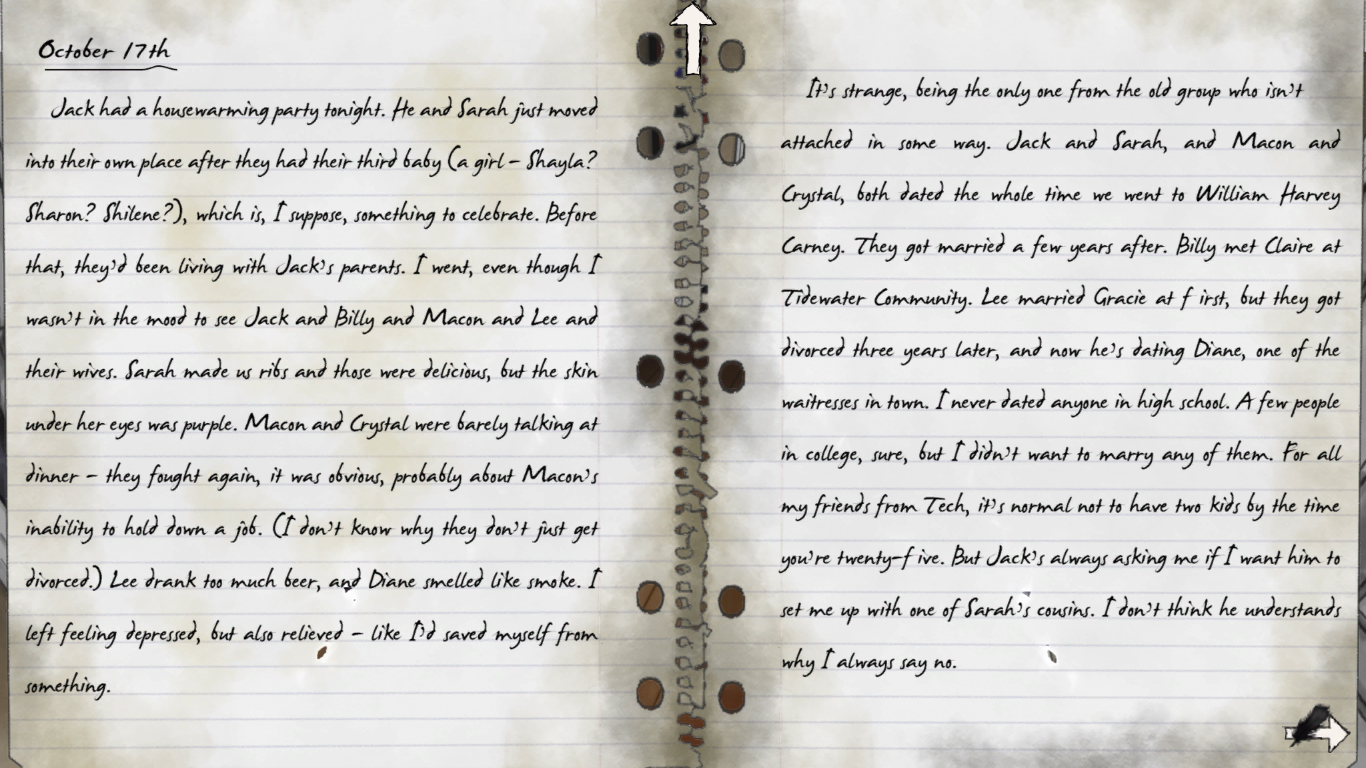 October 17th
Jack had a housewarming party tonight. He and Sarah just moved
into their own place after they had their third baby (a girl – Shayla?
Sharon? Shilene?), which is, I suppose, something to celebrate. Before
that, they'd been living with Jack's parents. I went, even though I
wasn't in the mood to see Jack and Billy and Macon and Lee and
their wives. Sarah made us ribs and those were delicious, but the skin
under her eyes was purple. Macon and Crystal were barely talking at
dinner – they fought again, it was obvious, probably about Macon's
inability to hold down a job. (I don't know why they don't just get
divorced.) Lee drank too much beer, and Diane smelled like smoke. I
left feeling depressed, but also relieved – like I'd saved myself from
something.
It's strange, being the only one from the old group who isn't
attached in some way. Jack and Sarah, and Macon and
Crystal, both dated the whole time we went to William Harvey
Carney. They got married a few years after. Billy met Claire at
Tidewater Community. Lee married Gracie at first, but they got
divorced three years later, and now he's dating Diane, one of the
waitresses in town. I never dated anyone in high school. A few people
in college, sure, but I didn't want to marry any of them. For all
my friends from Tech, it's normal not to have two kids by the time
you're twenty-five. But Jack's always asking me if I want him to
set me up with one of Sarah's cousins. I don't think he understands
why I always say no.